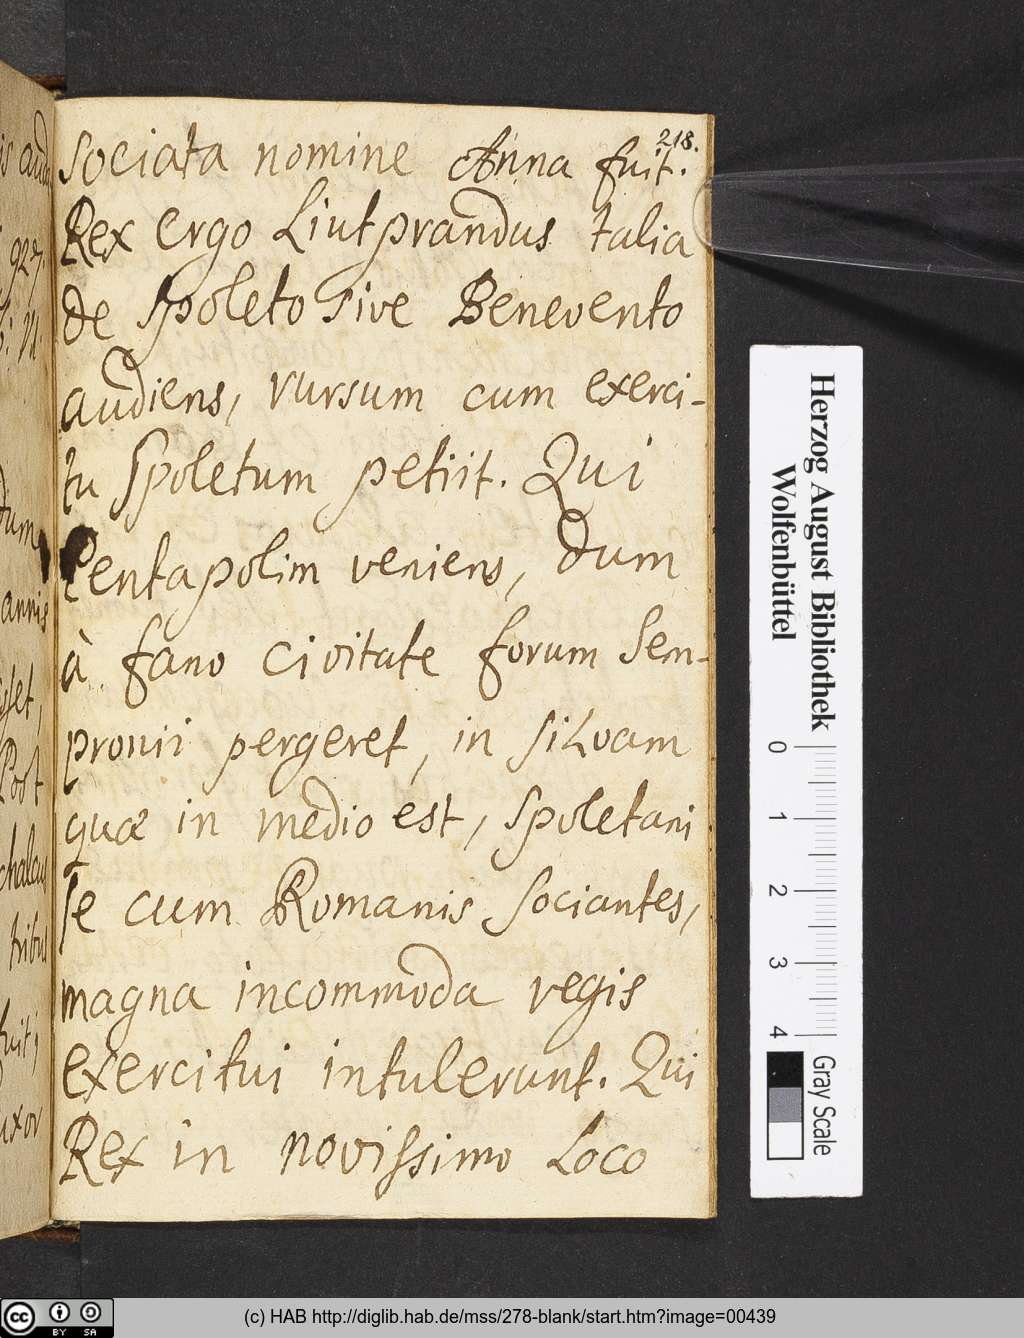 218.
sociata nomine Anna fuit.
Rex ergo Liutprandus talia
de Spoleto sive Benevento
audiens, rursum cum exerci-
tu Spoletum petiit. Qui
Pentapolim veniens, dum
à fano civitate forum Sem-
pronii pergeret, in silvam
quæ in medio est, Spoletani
se cum Romanis sociantes,
magna incommoda regis
exercitui intulerunt. Qui
Rex in novissimo loco
is aud
927.
dum
annis
sset,
Post
tribus
fuit;
uxor
Herzog August Bibliothek
Wolfenbüttel
0 1 2 3 4
Gray Scale
cc BY SA
(c) HAB http://diglib.hab.de/mss/278-blank/start.htm?image=00439